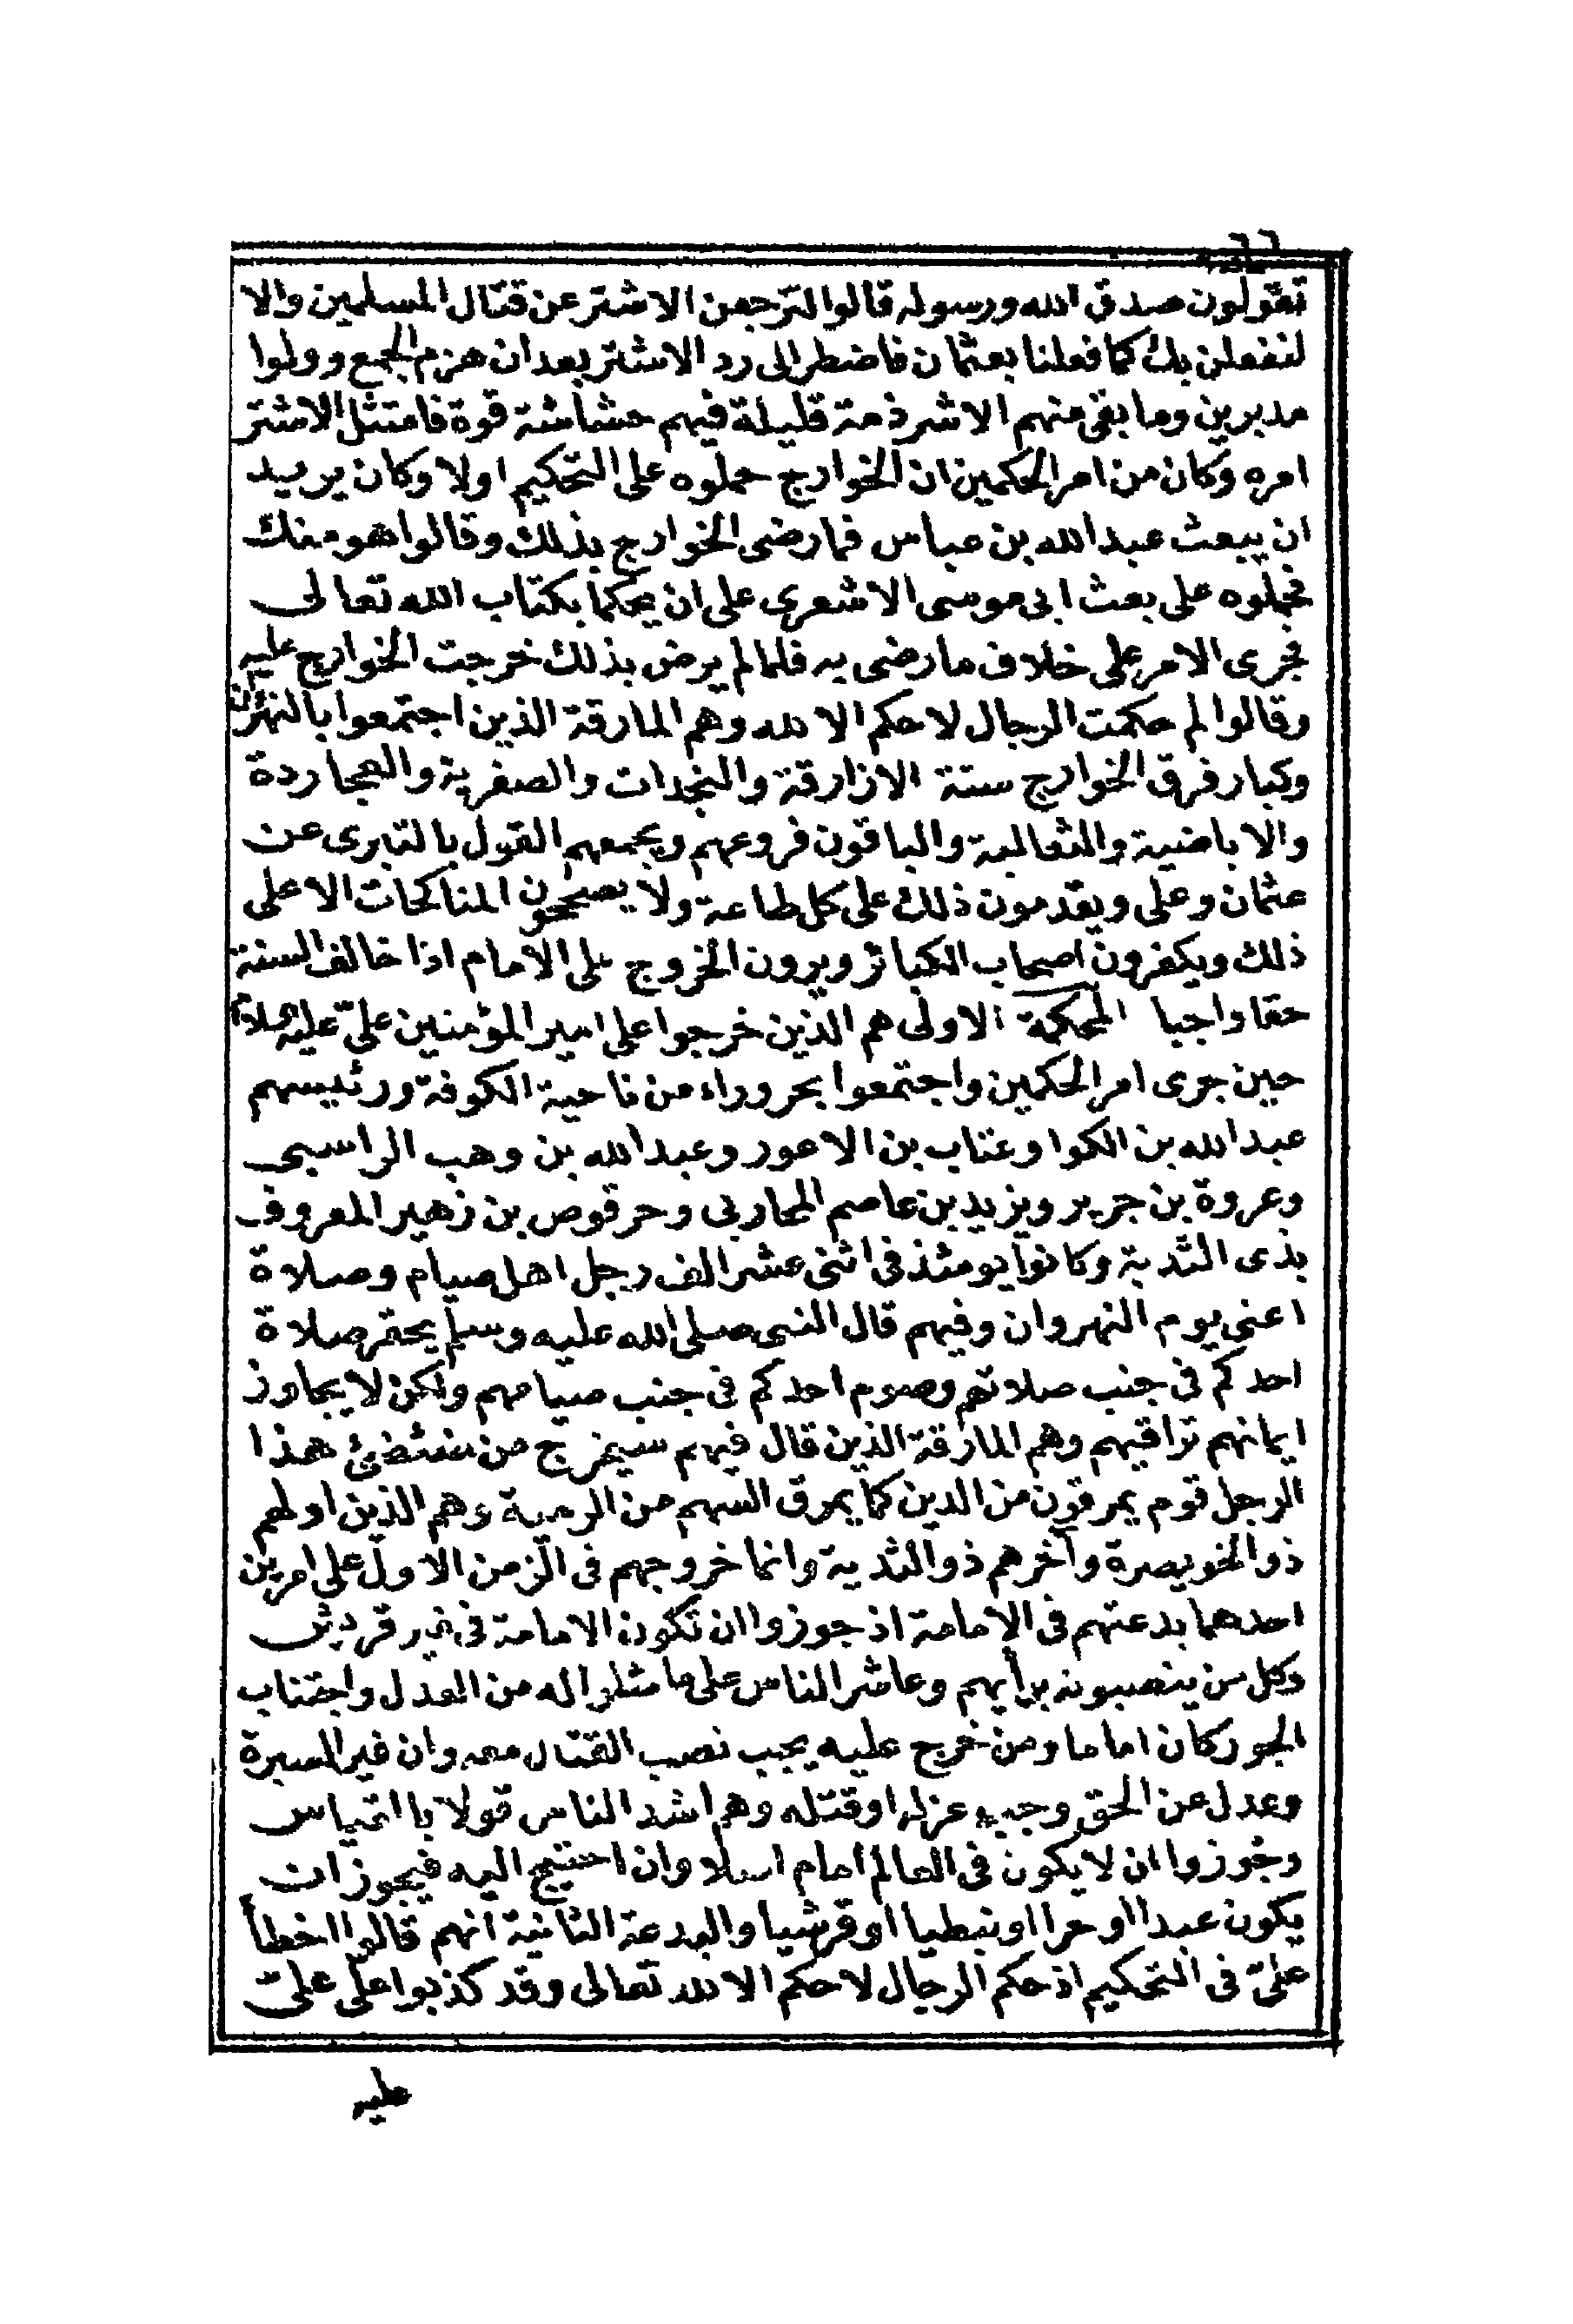 تقولون صدق الله ورسوله قالوا لترجعن الاشتر عن قتال المسلمين والا
لنفعلن بك كما فعلنا بعثمان فاضطر الى رد الاشتر بعد ان هزم الجمع وولوا
مدبرين وما بقى منهم الا شرذمة قليلة فيهم حشاشة قوة فامتثل الاشتر
امره وكان من امر الحكمين ان الخوارج حملوه على التحكيم اولا وكان يريد
ان يبعث عبد الله بن عباس فما رضى الخوارج بذلك وقالوا هو منك
فحملوه على بعث ابى موسى الاشعرى على ان يحكما بكتاب الله تعالى
فجرى الامر على خلاف ما رضى به فلما لم يرض بذلك خرجت الخوارج عليه
وقالوا لم حكمت الرجال لا حكم الا لله وهم المارقة الذين اجتمعوا بالنهروان
وكبار فرق الخوارج ستة الازارقة والنجدات والصفرية والعجاردة
والاباضية والثعالبة والباقون فروعهم ويجمعهم القول بالتبرى عن
عثمان وعلى ويقدمون ذلك على كل طاعة ولا يصححون المناكحات الا على
ذلك ويكفرون اصحاب الكبائر ويرون الخروج على الامام اذا خالف السنة
حقا واجبا المحكمة الاولى هم الذين خرجوا على امير المؤمنين علىّ عليه السلام
حين جرى امر الحكمين واجتمعوا بحروراء من ناحية الكوفة ورئيسهم
عبد الله بن الكوا وعتاب بن الاعور وعبد الله بن وهب الراسبى
وعروة بن جرير ويزيد بن عاصم المحاربى وحرقوص بن زهير المعروف
بذى الثدية وكانوا يومئذ فى اثنى عشر الف رجل اهل صيام وصلاة
اعنى يوم النهروان وفيهم قال النبى صلى الله عليه وسلم يحقر صلاة
احدكم فى جنب صلاتهم وصوم احدكم فى جنب صيامهم ولكن لا يجاوز
ايمانهم تراقيهم وهم المارقة الذين قال فيهم سيخرج من ضئضئ هذا
الرجل قوم يمرقون من الدين كما يمرق السهم من الرمية وهم الذين اولهم
ذو الخويصرة وآخرهم ذو الثدية وانما خروجهم فى الزمن الاول على امرين
احدهما بدعتهم فى الامامة اذ جوزوا ان تكون الامامة فى غير قريش
وكل من ينصبونه برأيهم وعاشر الناس على ما مثلوا له من العدل واجتناب
الجور كان اماما ومن خرج عليه يجب نصب القتال معه وان غير السيرة
وعدل عن الحق وجب عزله او قتله وهم اشد الناس قولا بالقياس
وجوزوا ان لا يكون فى العالم امام اصلا وان احتيج اليه فيجوز ان
يكون عبدا او حرا او نبطيا او قرشيا والبدعة الثانية انهم قالوا اخطأ
علىّ فى التحكيم اذ حكم الرجال لا حكم الا لله تعالى وقد كذبوا على علىّ
عليه